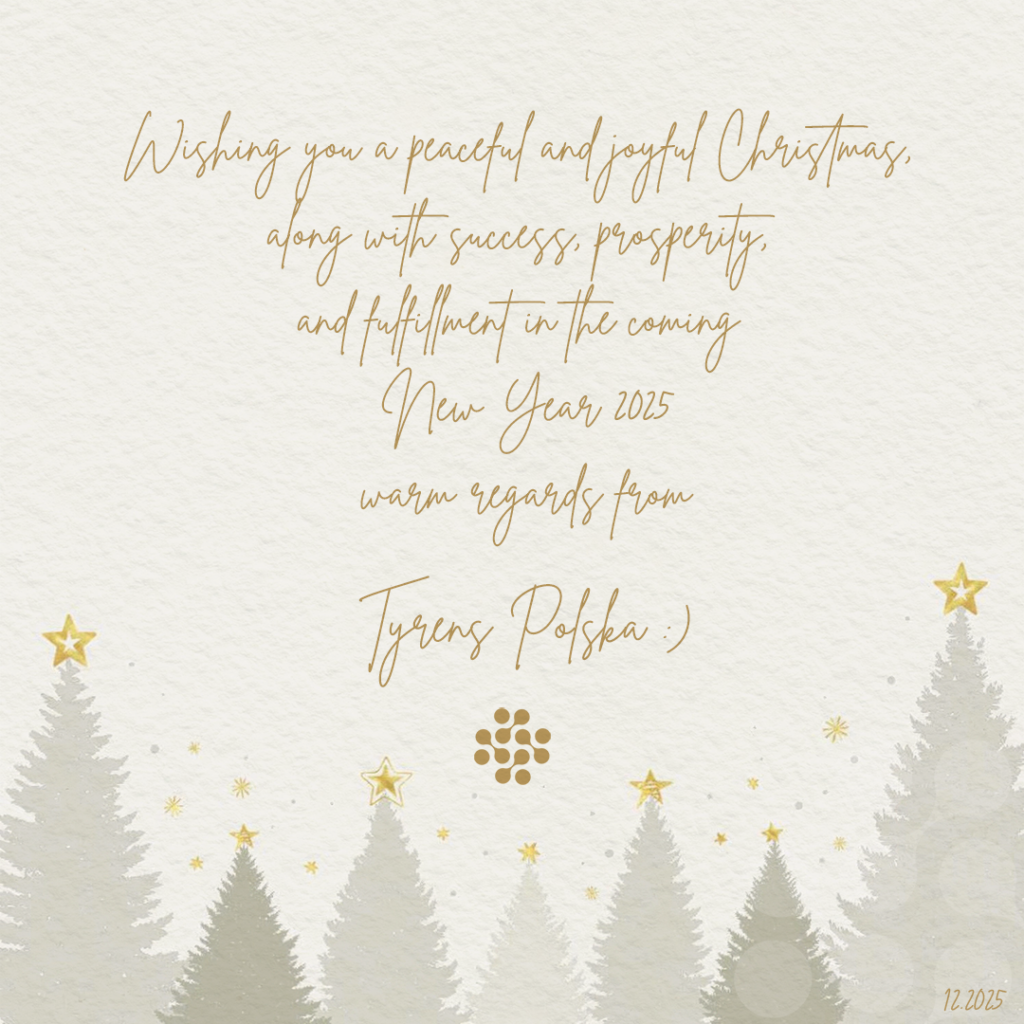 Wishing you a peaceful and joyful Christmas,
along with success, prosperity,
and fulfillment in the coming
New Year 2025
warm regards from
Tyrens Polska :)
12.2025